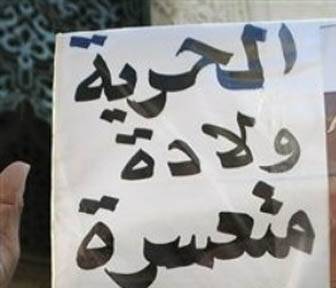 الحرية
ولادة
متعسرة